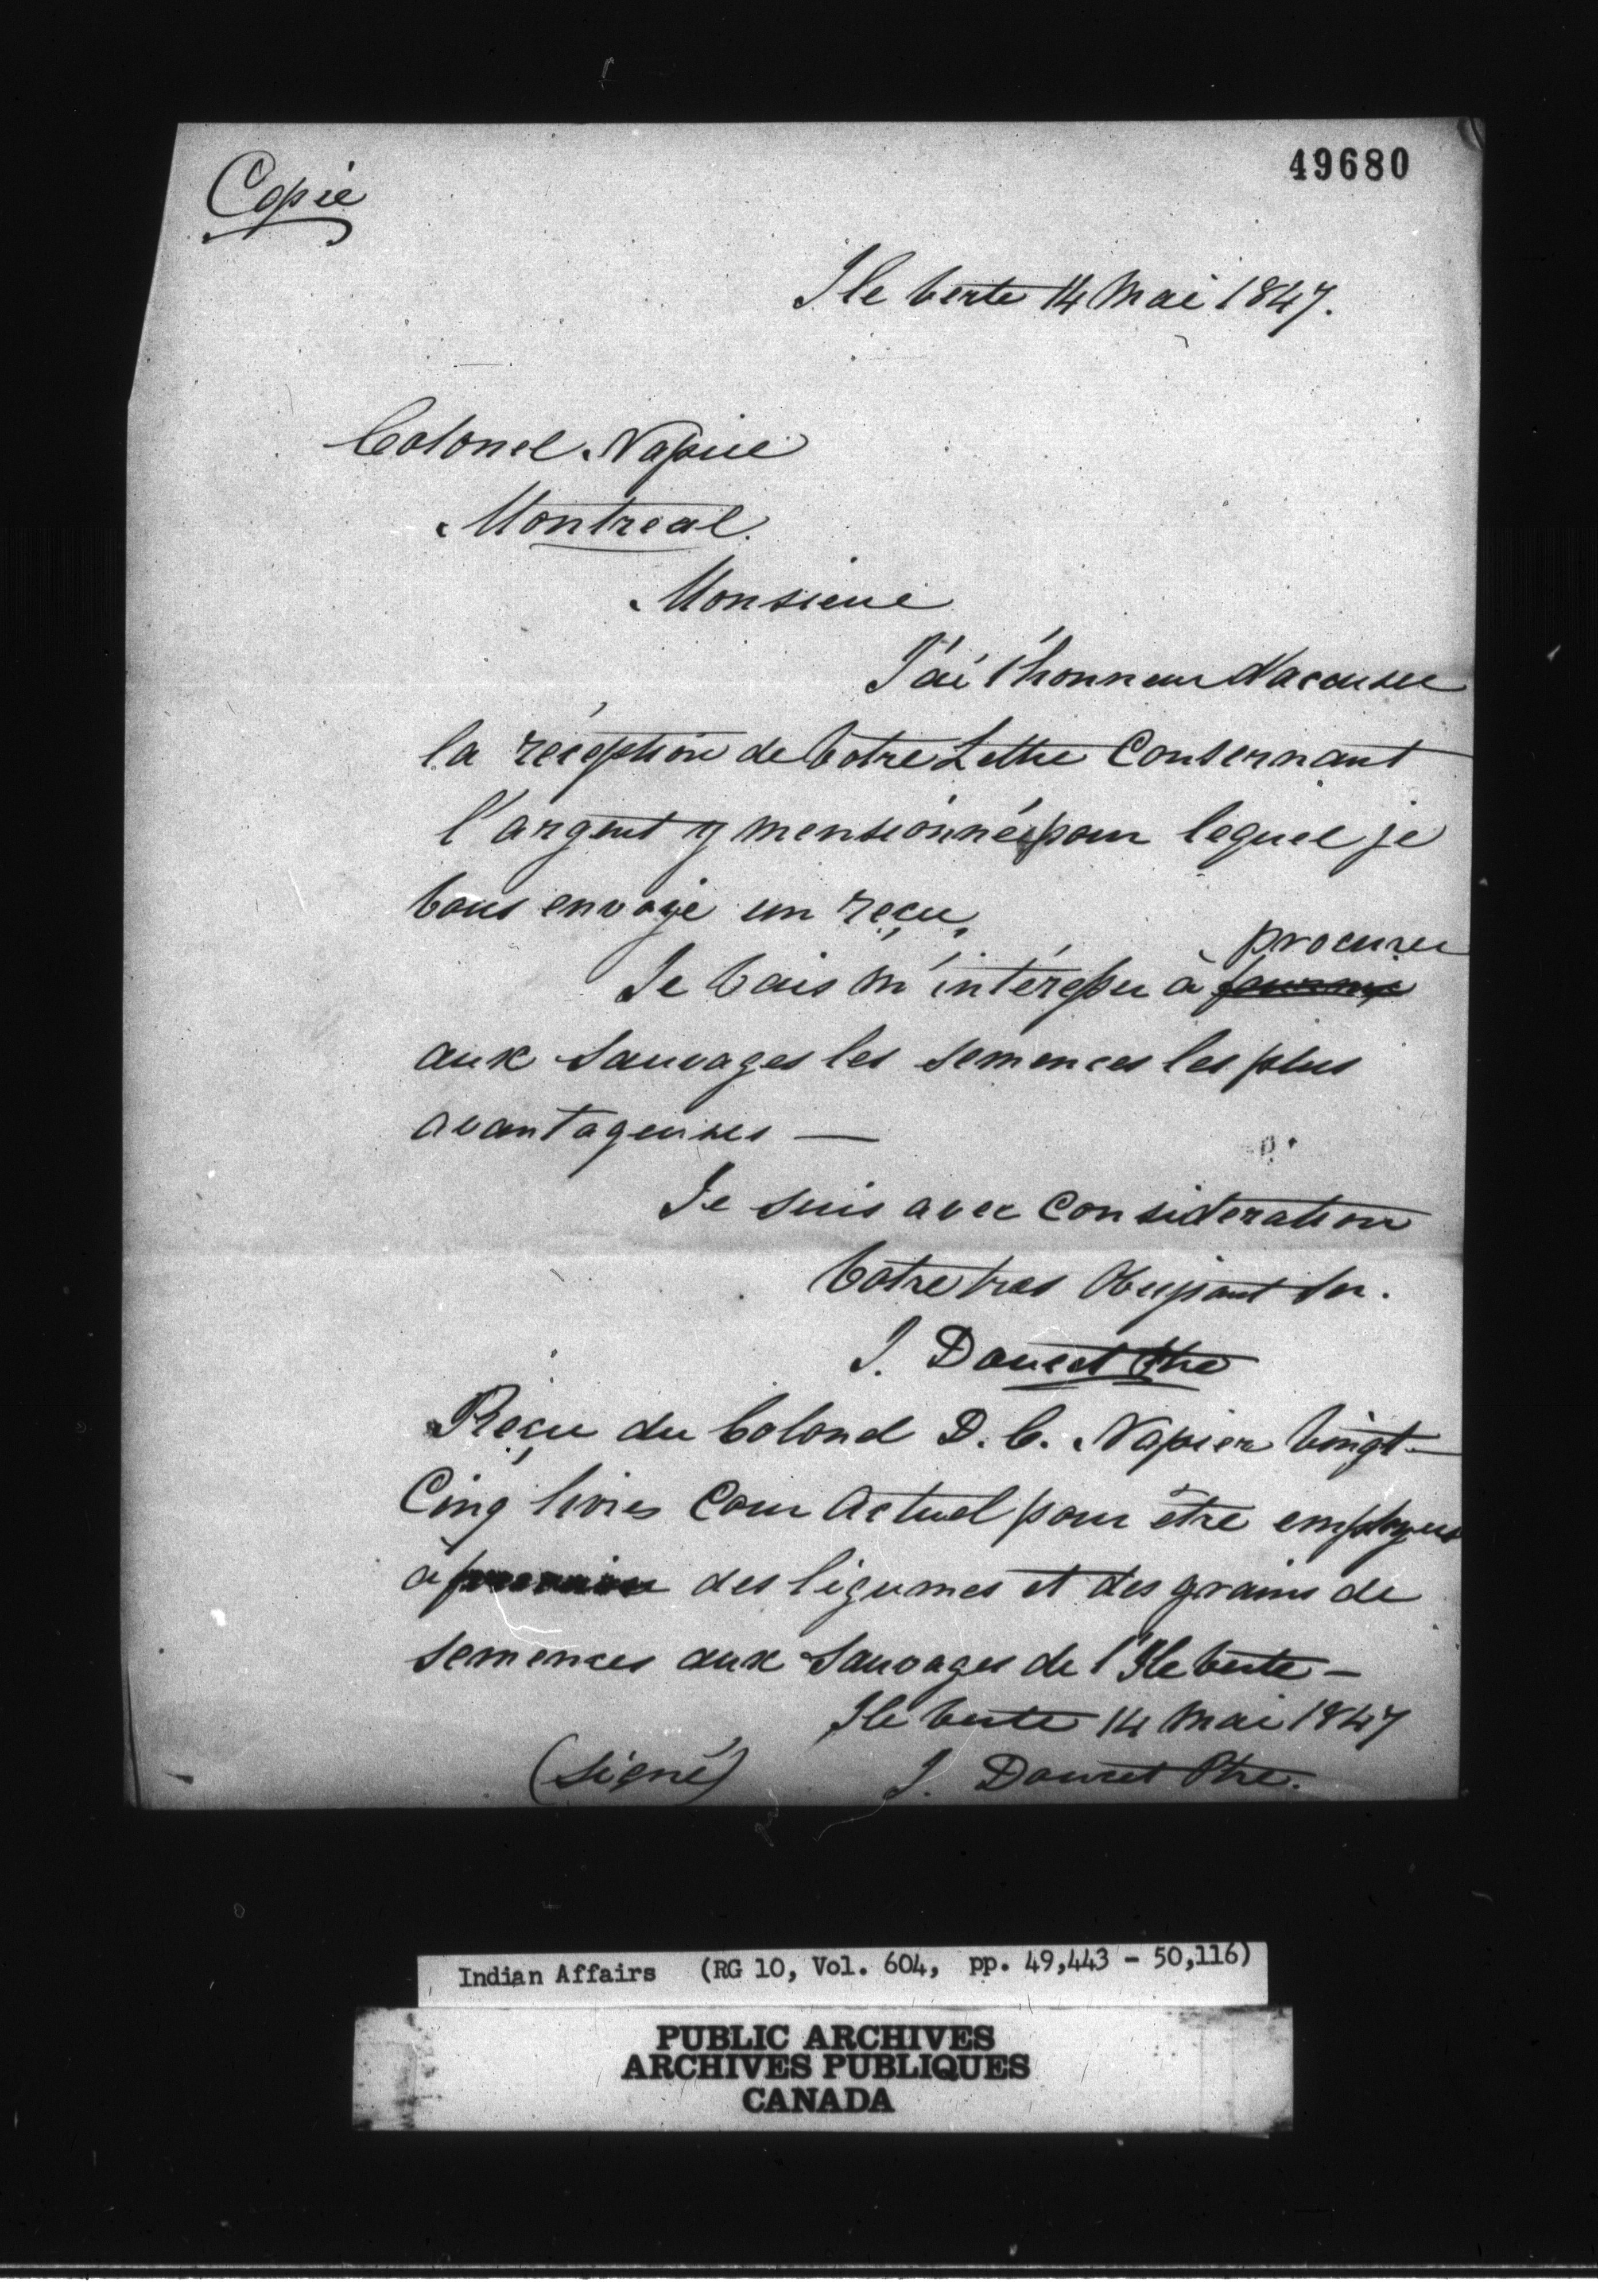 Copie
49680
Ile Verte 14 Mai 1847.
Colonel Napier
Montreal.
Monsieur
J'ai l'honneur d'accuser
la réception de Votre Lettre Consernant
l'argent y mensionné pour lequel je
Vous envoye un reçu.
procurer
Je Vais m'intéresser à
aux Sauvages les semences les plus
avantageuses —
Je suis avec Consideration
Votre tres Obeissant Ser.
J. Doucet Ptre
Reçu du Colonel D. C. Napier Vingt-
Cinq livres Cour Actuel pour être employés
à des légumes et des grains de
semences aux Sauvages de l'Ile Verte —
Ile Verte 14 Mai 1847
(Signé) J. Doucet Ptre.
Indian Affairs (RG 10, Vol. 604, pp. 49,443 - 50,116)
PUBLIC ARCHIVES
ARCHIVES PUBLIQUES
CANADA